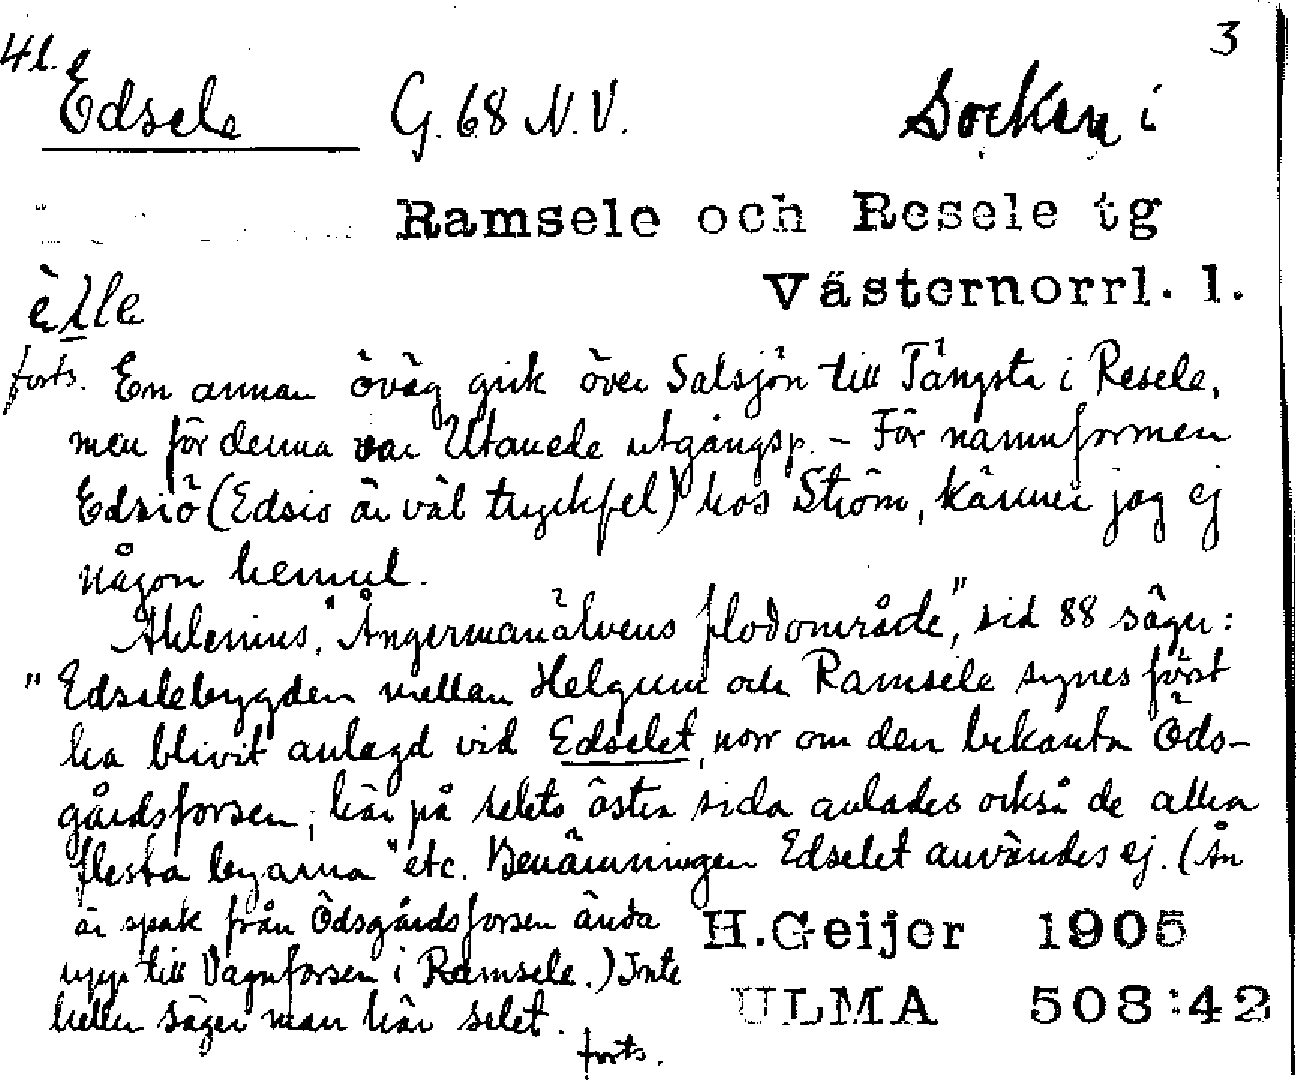 4b. 3
Edsele G. 68 N.V. Socken i
Ramsele och Resele tg
Västernorrl. l.
forts. En annan öväg gick över Salsjön till Tängsta i Resele,
men för denna var Utanede utgångsp. – För namnformen
Edsiö (Edsio är väl tryckfel) hos Ström, känner jag ej
någon hemul.
Ahlenius, "Ångermanälvens flodområde", sid 88 säger:
"Edselebygden mellan Helgum och Ramsele synes först
ha blivit anlagd vid Edselet, norr om den bekanta Öds-
gårdsforsen; här på selets östra sida anlades också de allra
flesta byarna" etc. Benämningen Edselet användes ej. (Ån
är spak från Ödsgårdsforsen ända
upp till Vagnforsen i Ramsele.) Inte
heller säger man här selet.
forts.
H.Geijer 1905
ULMA 508:42